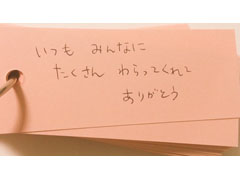 いつも みんなに
たくさん わらってくれて
ありがとう